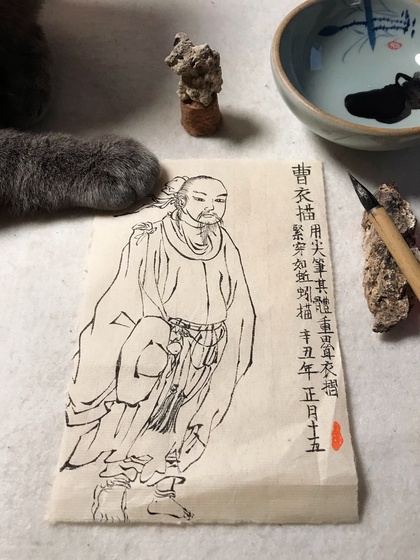 曹衣描
用尖筆其體重畳衣摺
緊穿如蚯蚓描 辛丑年 正月十五